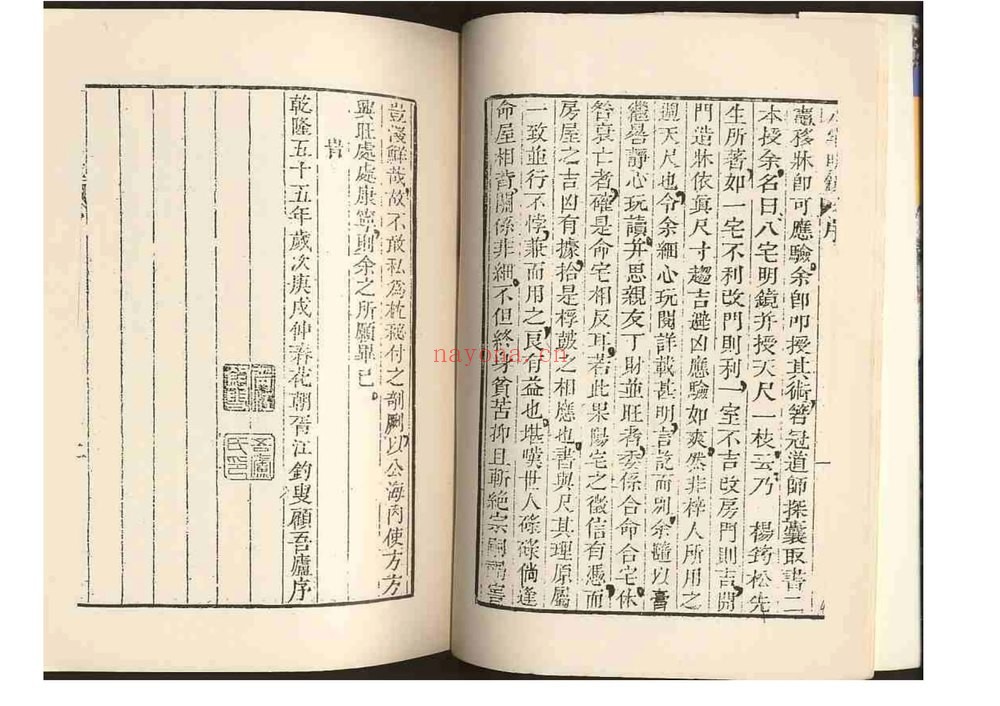 八宅明鏡 序
憲移牀卽可應驗余卽叩授其術箬冠道師探囊取書二
本授余名曰八宅明鏡并授天尺一枝云乃 楊筠松先
生所著如一宅不利改門則利一室不吉改房門則吉開
門造牀依眞尺寸趨吉避凶應驗如爽然非梓人所用之
週天尺也今余細心玩閱詳載甚明言訖而別余隨以
繼晷靜心玩讀并思親友丁財並旺者委係合命合宅休
咎衰亡者確是命宅相反耳若此果陽宅之徵信有憑而
房屋之吉凶有據拾是桴皷之相應也書與尺其理原屬
一致並行不悖兼而用之良有益也堪嘆世人碌碌倘逢
命屋相背關係非細不但終身貧苦抑且斬絕宗嗣
豈淺鮮哉故不敢私爲枕秘付之剞劂以公海內使方方
興旺處處康寧則余之所願畢已
旹
乾隆五十五年歲次庚戌仲春花朝胥江釣叟顧吾廬序
吾廬
氏印
nayona.cn